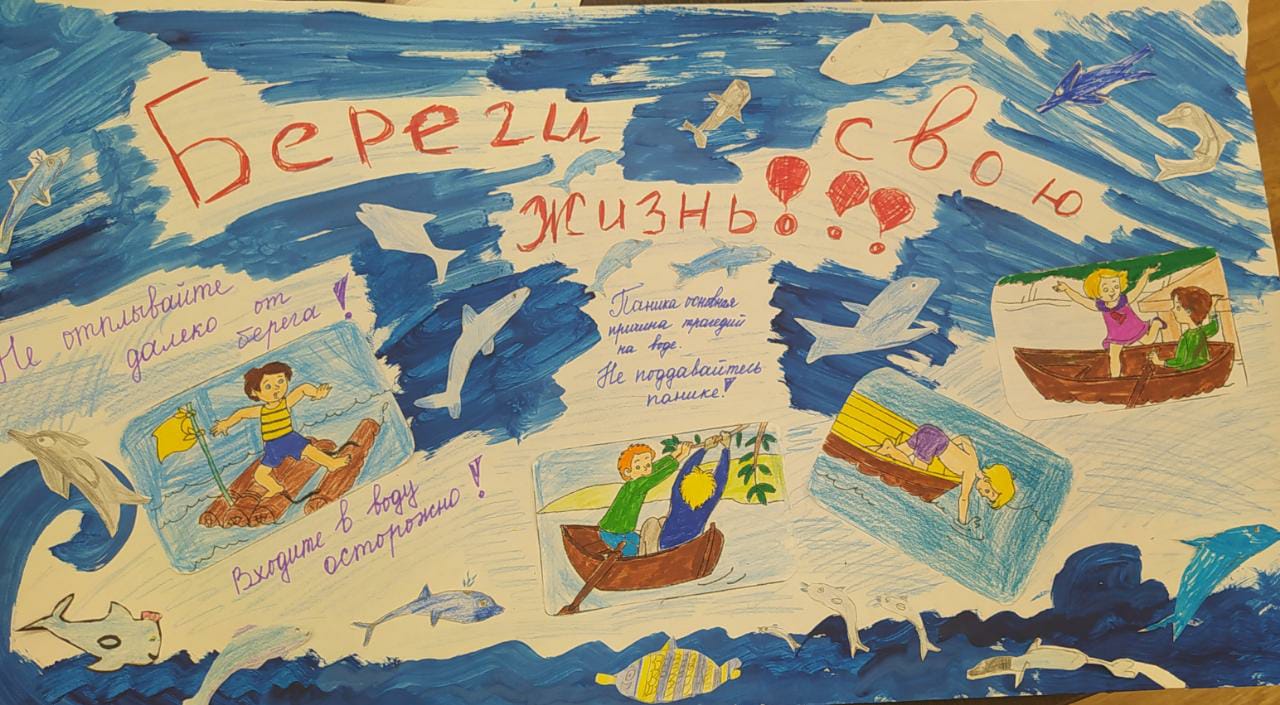 Береги свою
жизнь!!?
Не отплывайте
далеко от
берега!
Входите в воду
осторожно!
Паника основная
причина трагедий
на воде.
Не поддавайтесь
панике!